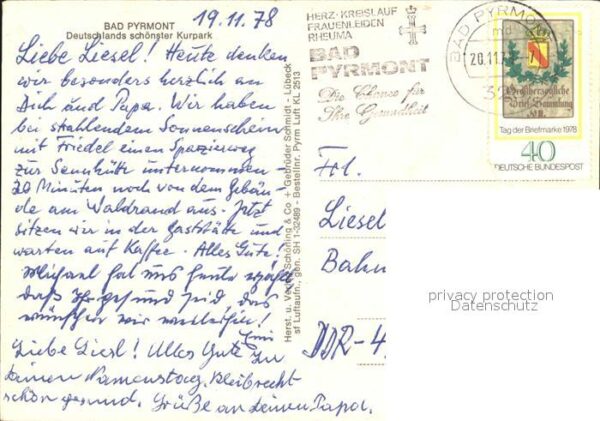 BAD PYRMONT
Deutschlands schönster Kurpark
19.11.78
Liebe Liesel! Heute denken
wir besonders herzlich an
Dich und Papa. Wir haben
bei strahlendem Sonnenschein
mit Friedel einen Spaziergang
zur Sennhütte unternommen -
20 Minuten noch von dem Gebäu-
de am Waldrand aus. Jetzt
sitzen wir in der Gaststätte und
warten auf Kaffee. Alles Gute!
Michael hat uns heute erzählt
daß Ihr gesund seid, das
wünschen wir weiterhin!
Liebe Liesl! Alles Gute zu
Deinem Namenstag. Bleib recht
schön gesund. Grüße an Deinen Papa.
Herst. u. Verlag Schöning & Co + Gebrüder Schmidt - Lübeck
sf Luftaufn., gen. SH 1-32489 - Bestellnr. Pyrm Luft KL 2513
HERZ-KREISLAUF
FRAUENLEIDEN
RHEUMA
BAD
PYRMONT
Die Chance für
Ihre Gesundheit
BAD PYRMONT
md
20.11.
Großherzogliche
Brief-Sammlung
Tag der Briefmarke 1978
40
DEUTSCHE BUNDESPOST
Frl.
Liesel
Bahn
DDR-4
privacy protection
Datenschutz